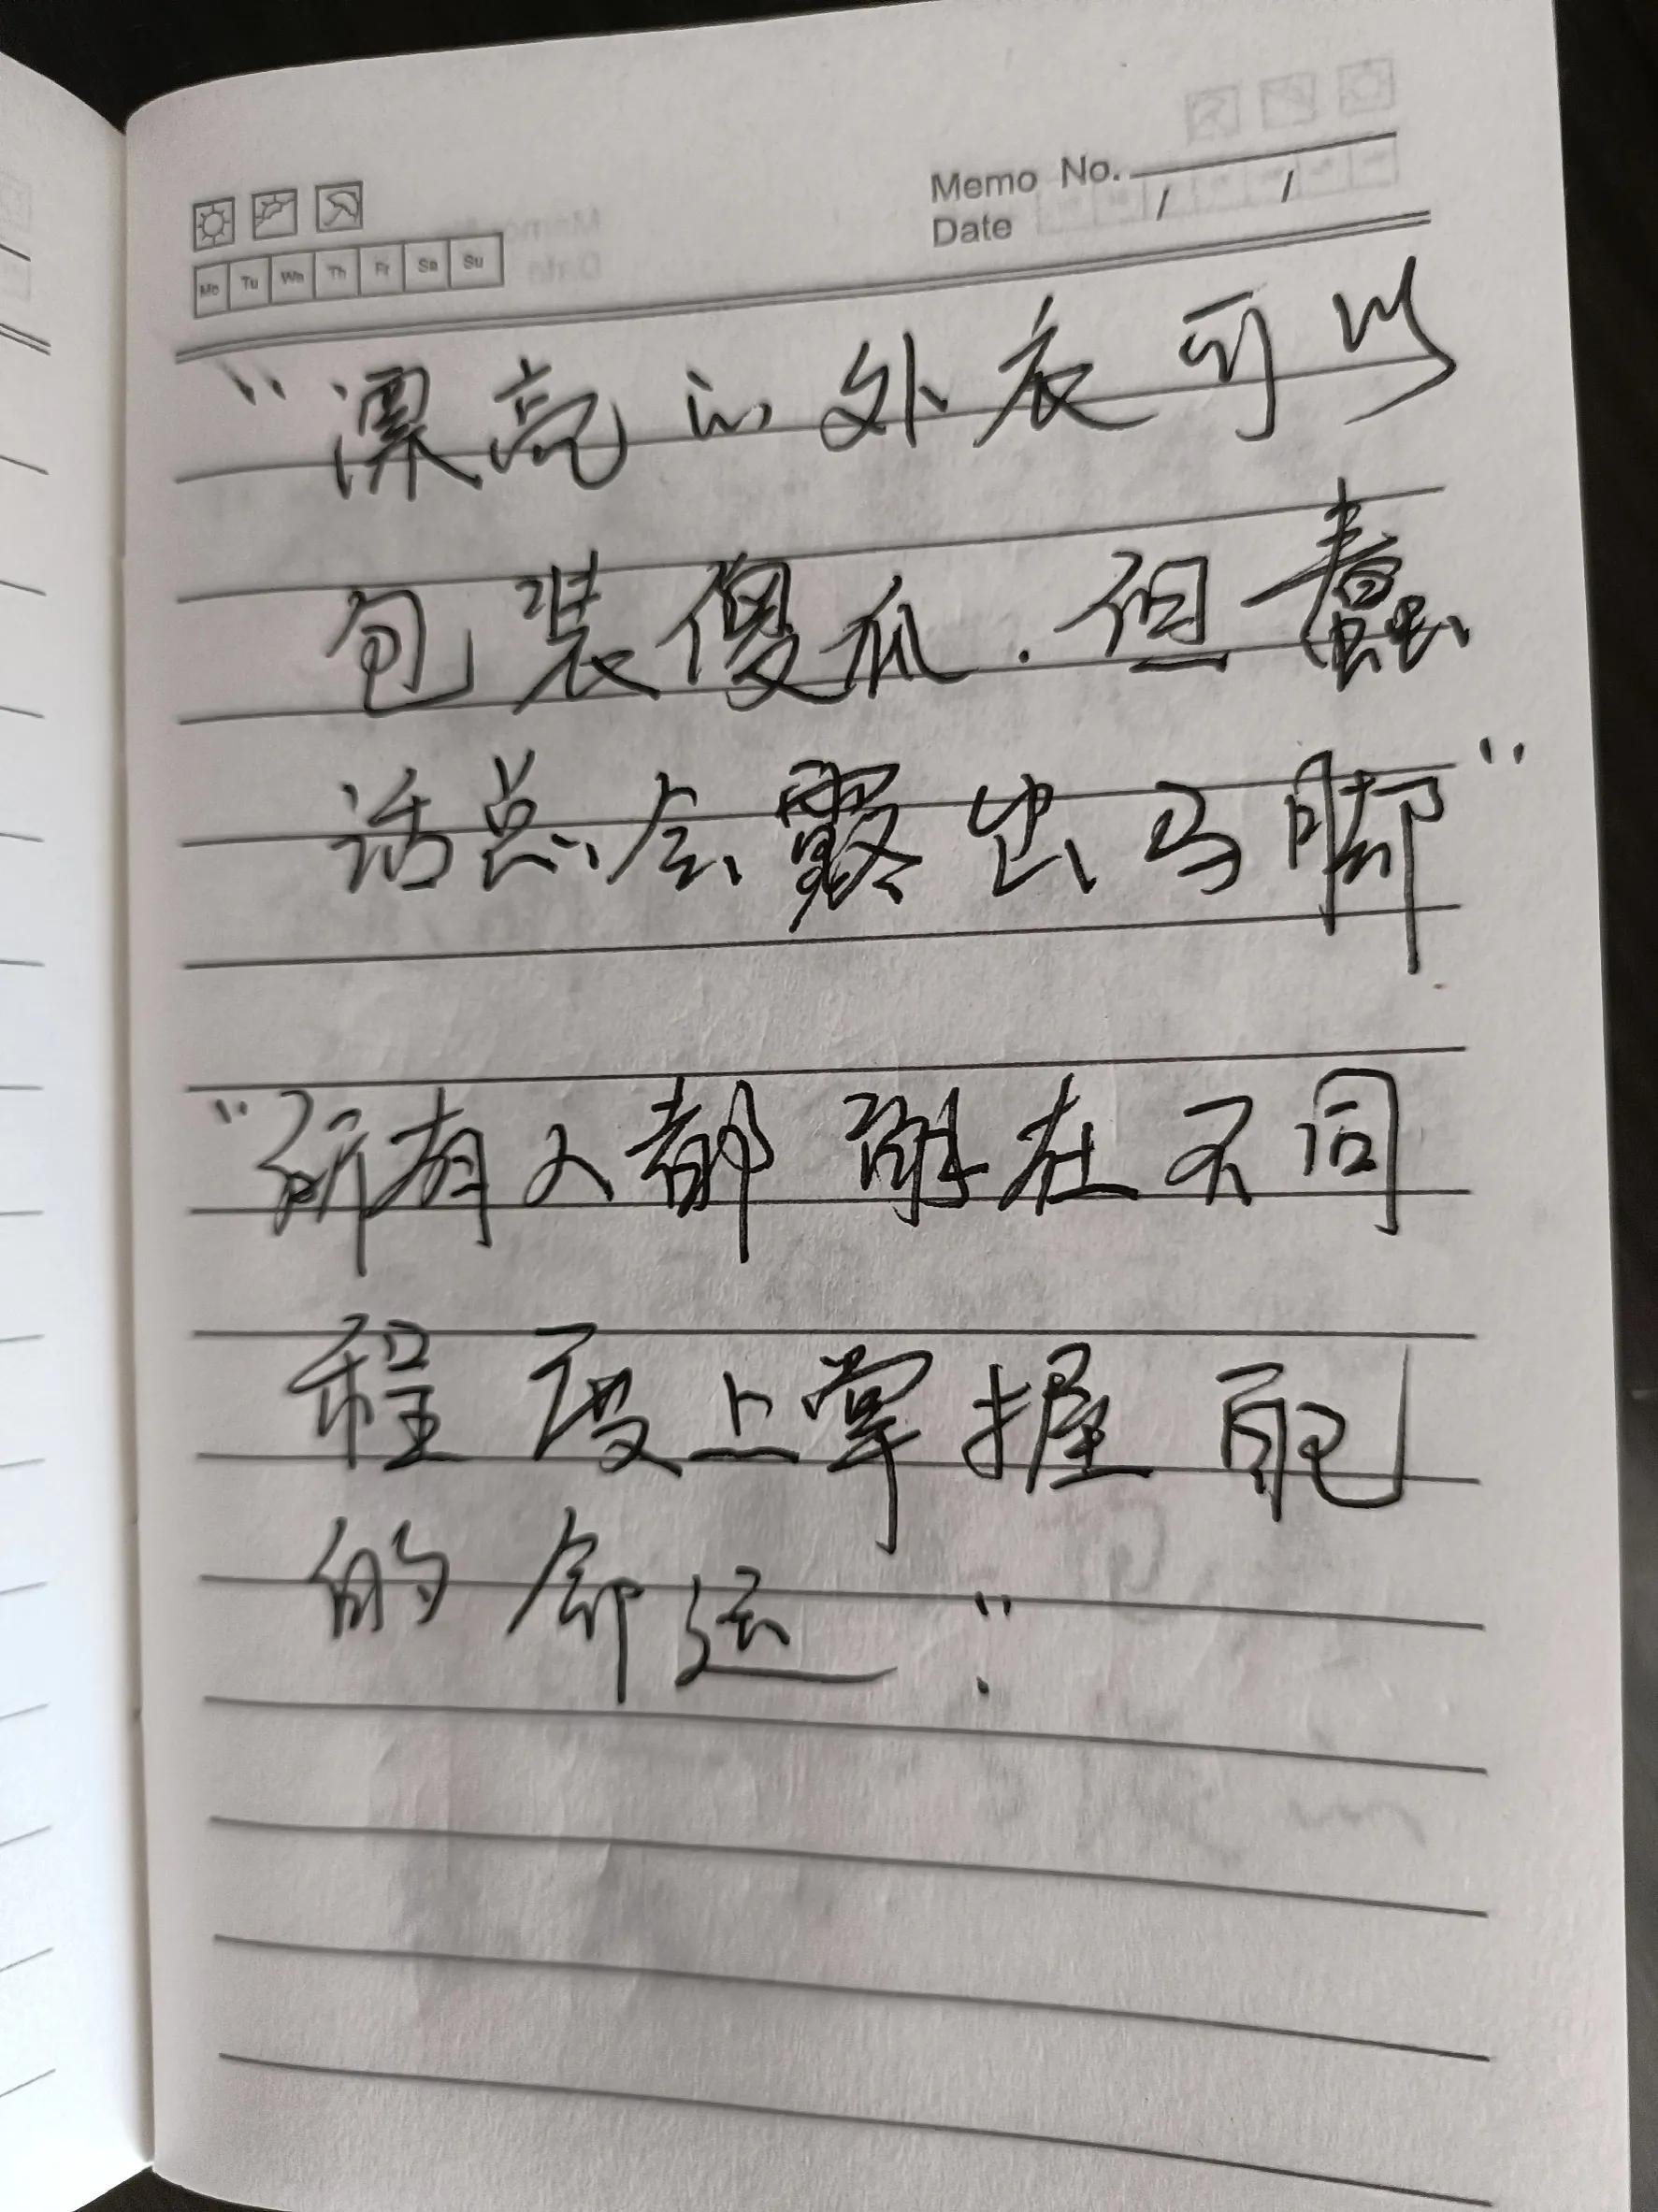 Memo No.
Date / /
Mo Tu We Th Fr Sa Su
“漂亮的外衣可以
包装傻瓜.但蠢
话总会露出马脚”
“所有人都能在不同
程度上掌握自己
的命运.”